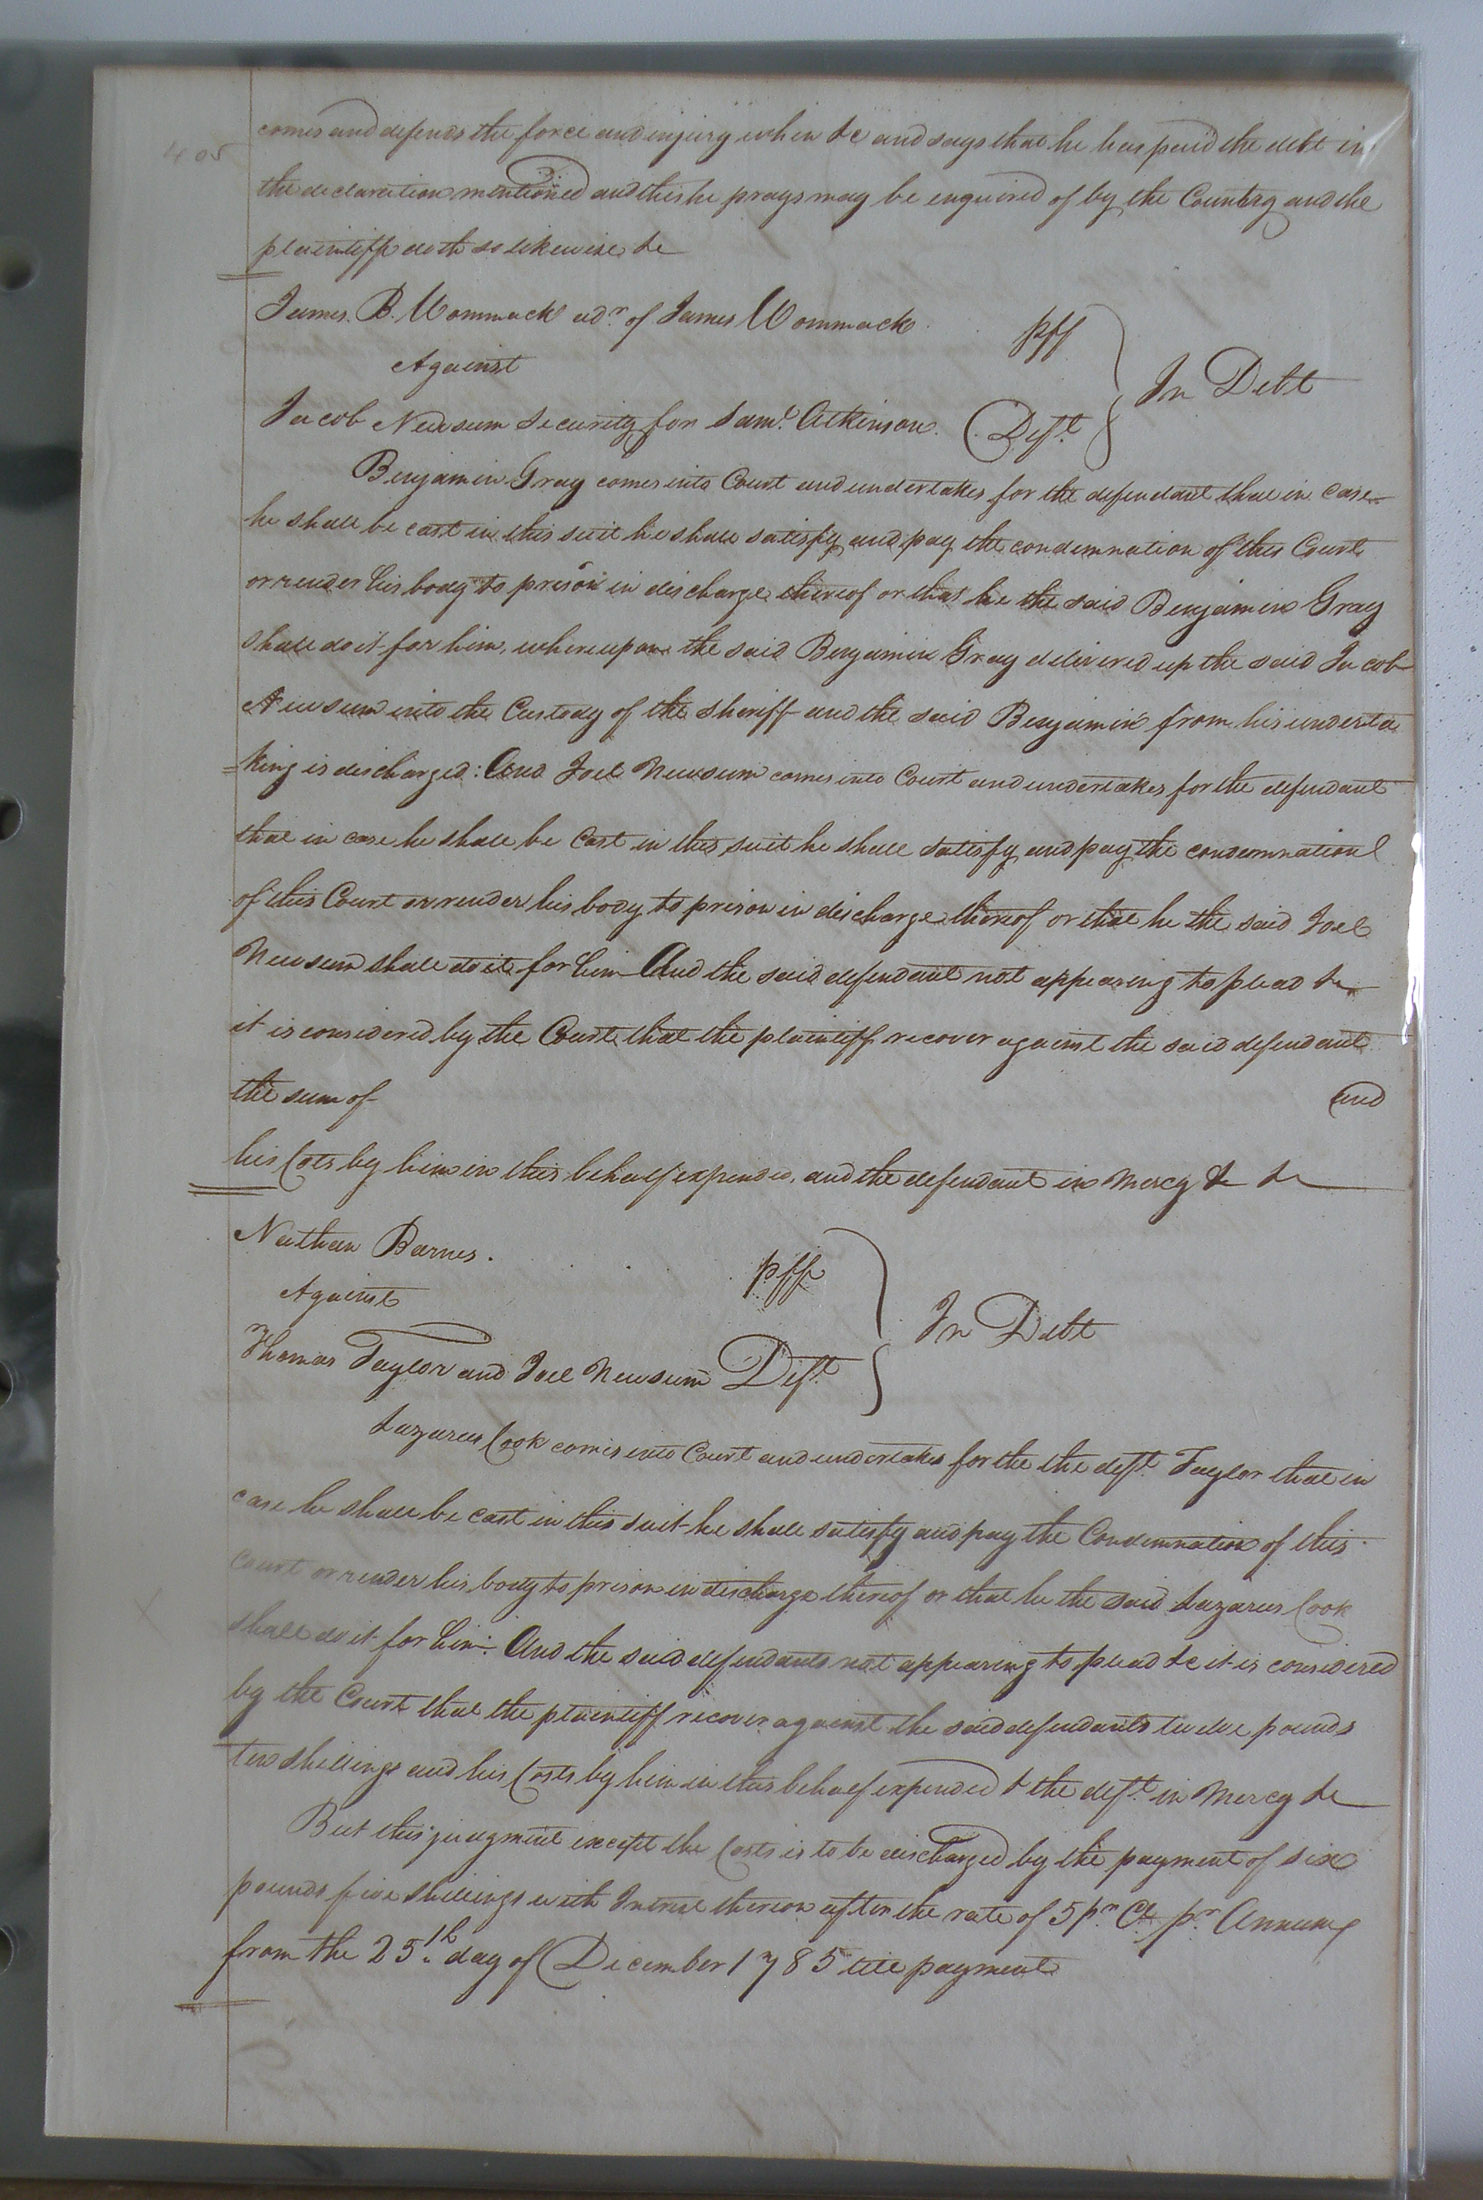 405
comes and defends the force and injury when &c and says that he has paid the debt in
the declaration mentioned and this he prays may be enquired of by the Country and the
plaintiff doth so likewise &c
James B. Wommack adr. of James Wommack pff
Against
In Debt
Jacob Newsum Security for Saml. Atkinson. Deft.
Benjamin Gray comes into Court and undertakes for the defendant that in case
he shall be cast in this suit he shall satisfy and pay the condemnation of this Court
or render his body to prison in discharge thereof or that he the said Benjamin Gray
shall do it for him, whereupon the said Benjamin Gray delivered up the said Jacob
Newsum into the Custody of the Sheriff and the said Benjamin from his underta
=king is discharged: And Joel Newsum comes into Court and undertakes for the defendant
that in case he shall be Cast in this suit he shall satisfy and pay the condemnation
of this Court or render his body to prison in discharge thereof or that he the said Joel
Newsum shall do it for him And the said defendant not appearing to plead &c
it is considered by the Court that the plaintiff recover against the said defendant
the sum of and
his Costs by him in this behalf expended, and the defendant in Mercy & &c
Nathan Barnes. pff
Against
In Debt
Thomas Taylor and Joel Newsum Deft.
Lazarus Cook comes into Court and undertakes for the the deft. Taylor that in
case he shall be cast in this suit he shall satisfy and pay the Condemnation of this
Court or render his body to prison in discharge thereof or that he the said Lazarus Cook
shall do it for him. And the said defendants not appearing to plead &c it is considered
by the Court that the plaintiff recover against the said defendants twelve pounds
ten shillings and his Costs by him in this behalf expended & the deft. in Mercy &c
But this judgment except the Costs is to be discharged by the payment of six
pounds five shillings with Interest thereon after the rate of 5 pr. Ct. pr. Annum
from the 25th. day of December 1785 till payment